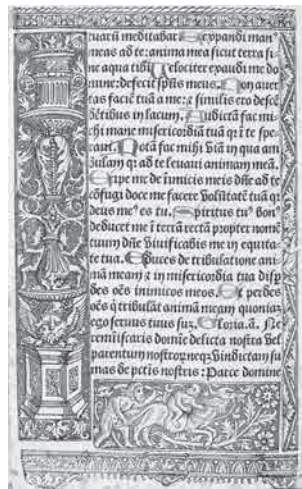 tuarū meditabar: Expandi man⁹
meas ad te: anima mea sicut terra si-
ne aqua tibi. Velociter exaudi me do
mine: defecit spūs meus. Non auer
tas faciē tuā a me: ⁊ similis ero descē
dētibus in lacum. Auditā fac mi
hi mane misericordiā tuā qꝛ ī te spe
raui. Notā fac mihi viā in qua am
bulem qꝛ ad te leuaui animam meā.
Eripe me de īimicis meis dñe ad te
cōfugi doce me facere volūtatē tuā qꝛ
deus me⁹ es tu. Spiritus tu⁹ bon⁹
deducet me ī terrā rectā propter nomē
tuum dñe viuificabis me in equita-
te tua. Educes de tribulatione ani-
mā meam ⁊ in misericordia tua disp
des oēs inimicos meos. Et perdes
oēs q̄ tribulāt animā meam quoniaꝫ
ego seruus tuus suꝫ. Gloria. ā. Ne
reminiscaris domine delicta nostra vel
parentum nostroꝝ neqꝫ vindictam su
mas de pctis nostris: Parce domine